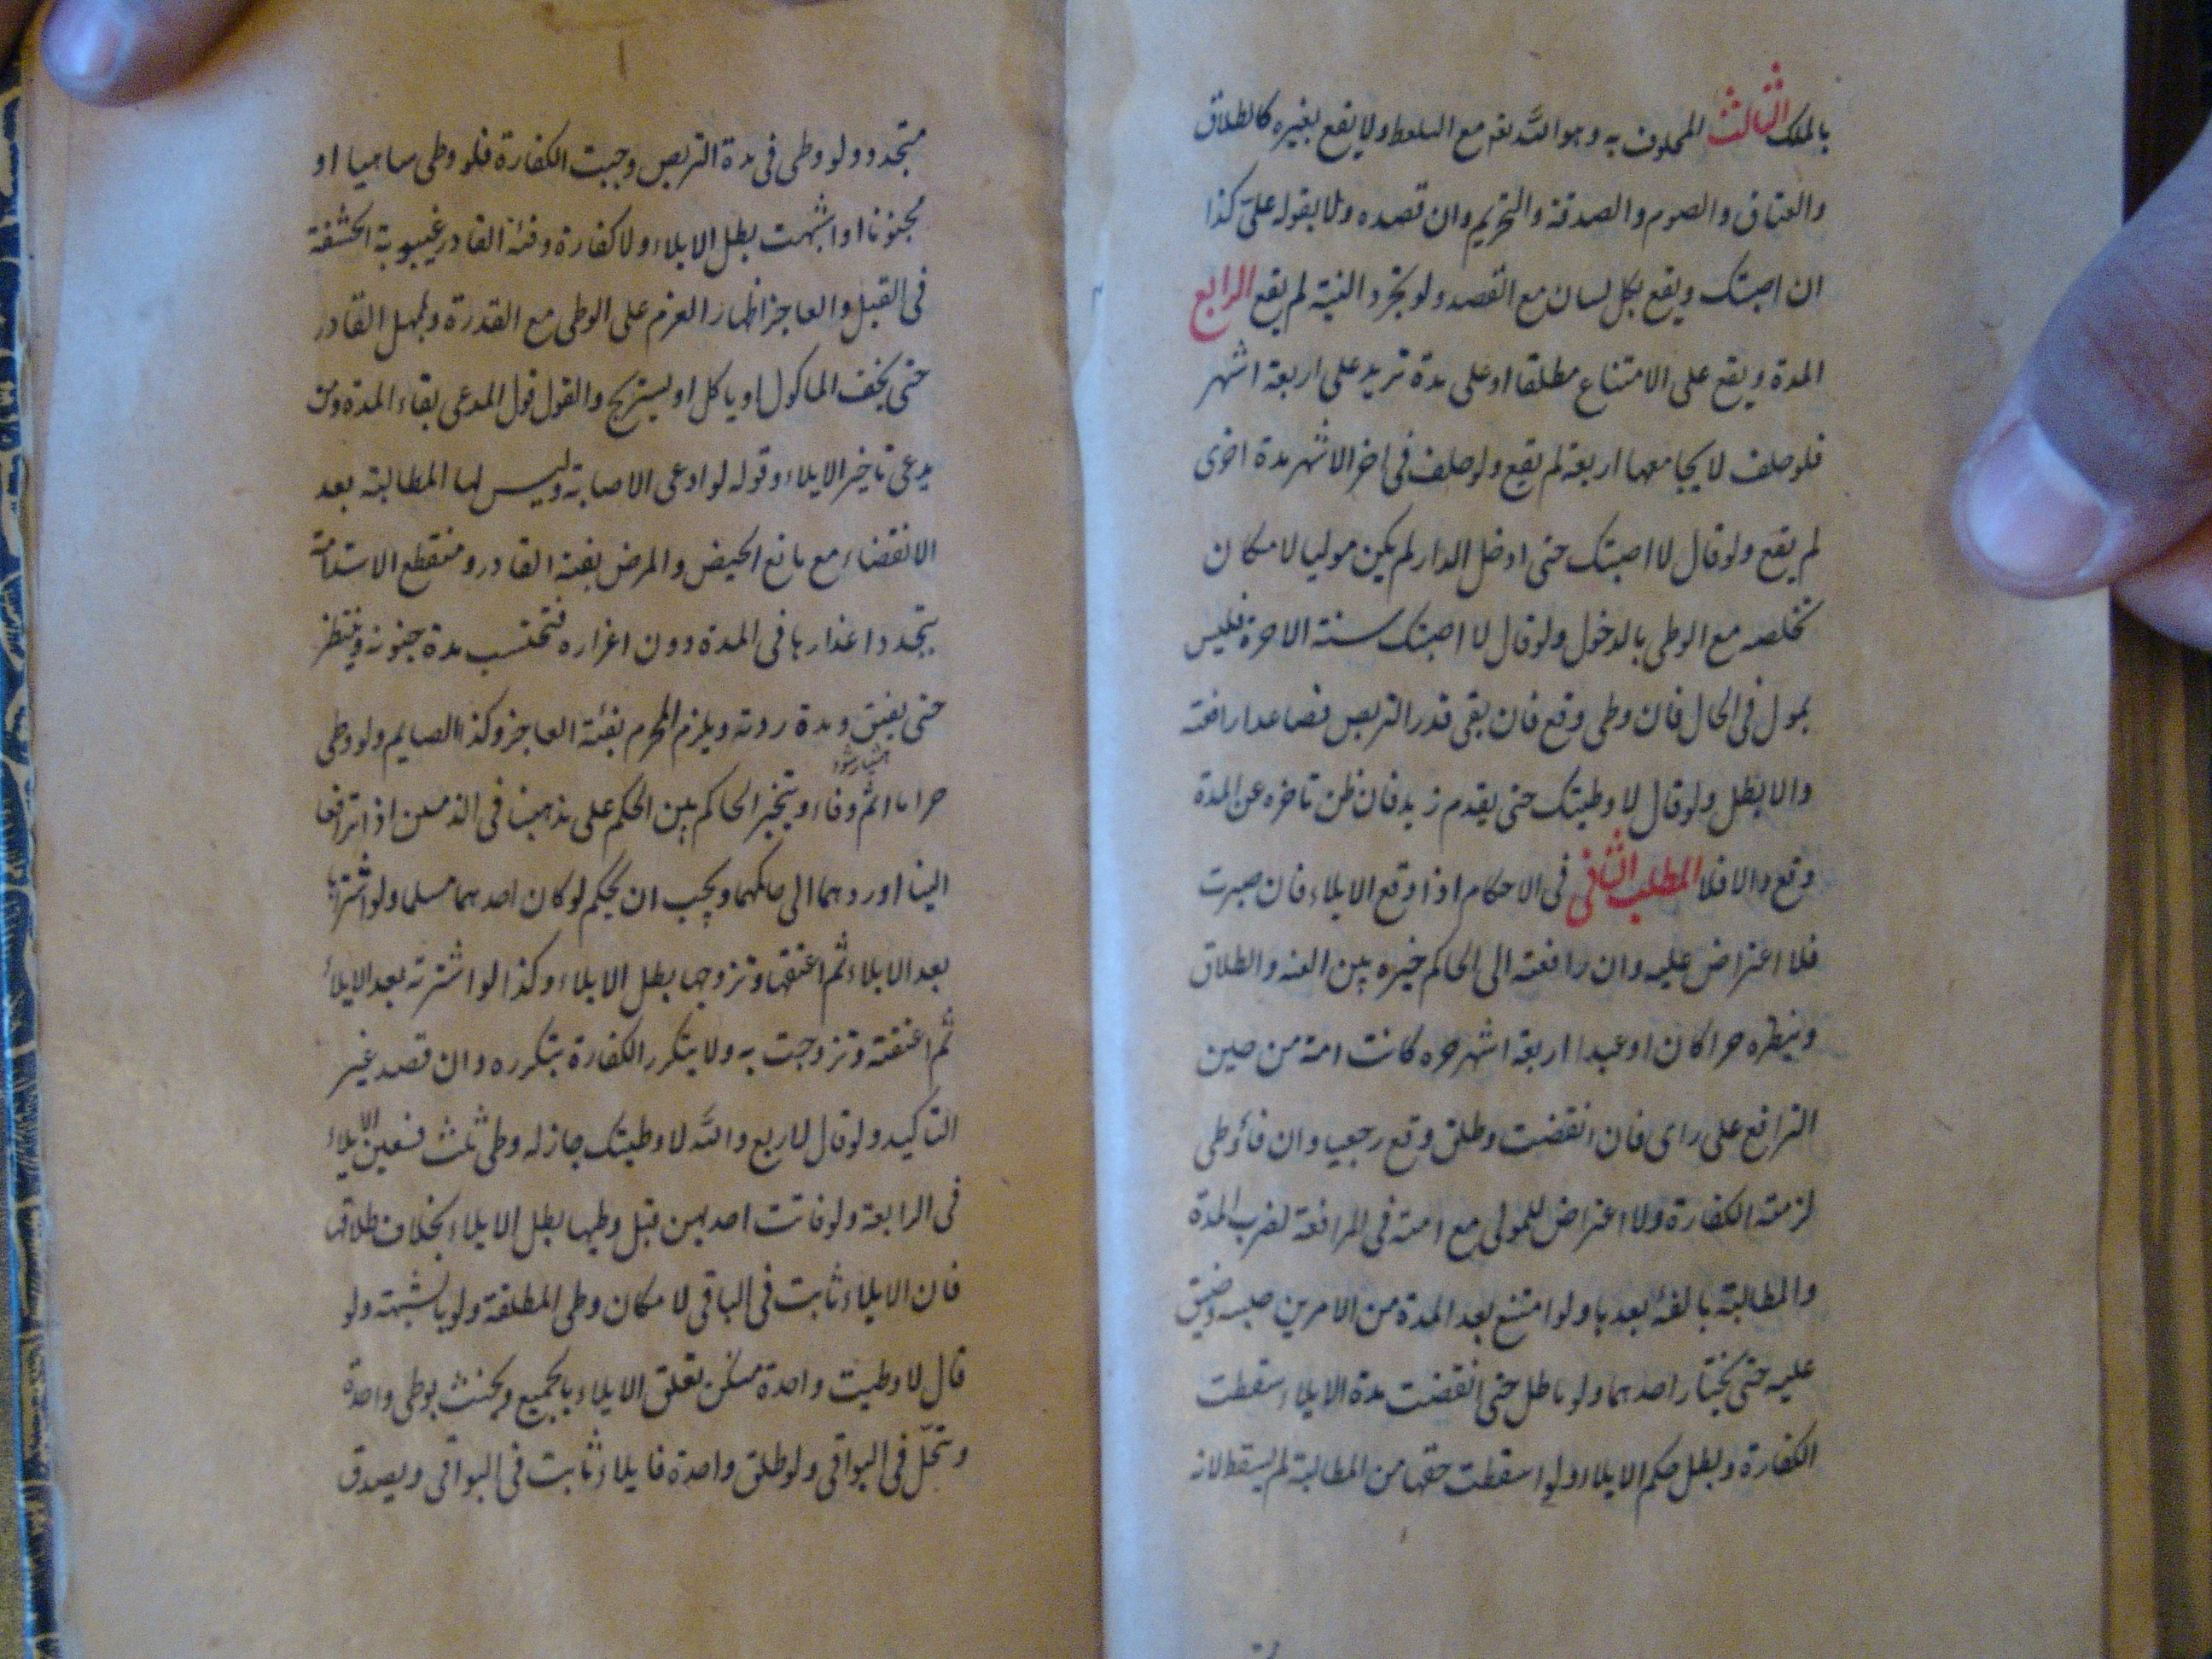 بالملك الثالث المحلوف به وهو الله تعه مع التلفظ ولا يقع بغيره كالطلاق
والعتاق والصوم والصدقة والتحريم وان قصده ولا بقوله علىّ كذا
ان اصبتك ويقع بكل لسان مع القصد ولو تجرد النية لم يقع الرابع
المدة ويقع على الامتناع مطلقا او على مدة تزيد على اربعة اشهر
فلو حلف لا يجامعها اربعة لم يقع ولو حلف فى اخر الاشهر مدة اخرى
لم يقع ولو قال لا اصبتك حتى ادخل الدار لم يكن موليا لامكان
تخلصه مع الوطى بالدخول ولو قال لا اصبتك سنة الا مرة فليس
بمول فى الحال فان وطى وقع فان بقى قدر التربص فصاعدا رافعته
والا بطل ولو قال لا وطيتك حتى يقدم زيد فان ظن تاخره عن المدة
وقع والا فلا المطلب الثانى فى الاحكام اذا وقع الايلاء فان صبرت
فلا اعتراض عليه وان رافعته الى الحاكم خيره بين الفئه والطلاق
وينظره حرا كان او عبدا اربعة اشهر حره كانت امة من حين
الترافع على راى فان انقضت وطلق وقع رجعيا وان فاء وطى
لزمته الكفارة ولا اعتراض للمولى مع امته فى المرافعة لضرب المدة
والمطالبة بالفئه بعدها ولو امتنع بعد المدة من الامرين حبسه وضيق
عليه حتى يختار احدهما ولو ماطل حتى انقضت مدة الايلاء سقطت
الكفارة وبطل حكم الايلاء ولو اسقطت حقها من المطالبة لم يسقط لانه
متجدد ولو وطى فى مدة التربص وجبت الكفارة فلو وطى ساهيا او
مجنونا او اشبهت بطل الايلاء ولا كفارة وفئة القادر غيبوبة الحشفة
فى القبل والعاجز اظهار العزم على الوطى مع القدرة ويمهل القادر
حتى يخف الماكول او ياكل او يستريح والقول قول المدعى بقاء المدة ومن
يدعى تاخير الايلاء وقوله لو ادعى الاصابة وليس لها المطالبة بعد
الانقضاء مع مانع الحيض والمرض بفئة القادر ومنقطع الاستدامة
بتجدد اعذارها فى المدة دون اعذاره فتحتسب مدة جنونه وينتظر
حتى يفيق ومدة ردته ويلزم المحرم بفئة العاجز وكذا الصايم ولو وطى
حراما اثم وفاء ويتخير الحاكم بين الحكم على مذهبنا فى الذميين اذا ترافعا
الينا او ردهما الى حاكمهما ويجب ان يحكم لو كان احدهما مسلما ولو اشتراها
بعد الايلاء ثم اعتقها وتزوجها بطل الايلاء وكذا لو اشترته بعد الايلاء
ثم اعتقته وتزوجت به ولا يتكرر الكفارة بتكرره وان قصد غير
التاكيد ولو قال لاربع والله لا وطيتك جاز له وطى ثلث فتعين الايلاء
فى الرابعة ولو فاتت احديهن قبل وطيها بطل الايلاء بخلاف طلاقها
فان الايلاء ثابت فى الباقى لامكان وطى المطلقة ولو بالشبهة ولو
قال لا وطيت واحدة منكن تعلق الايلاء بالجميع ويحنث بوطى واحدة
وتحلّ فى البواقى ولو طلق واحدة فايلاء ثابت فى البواقى ويصدق